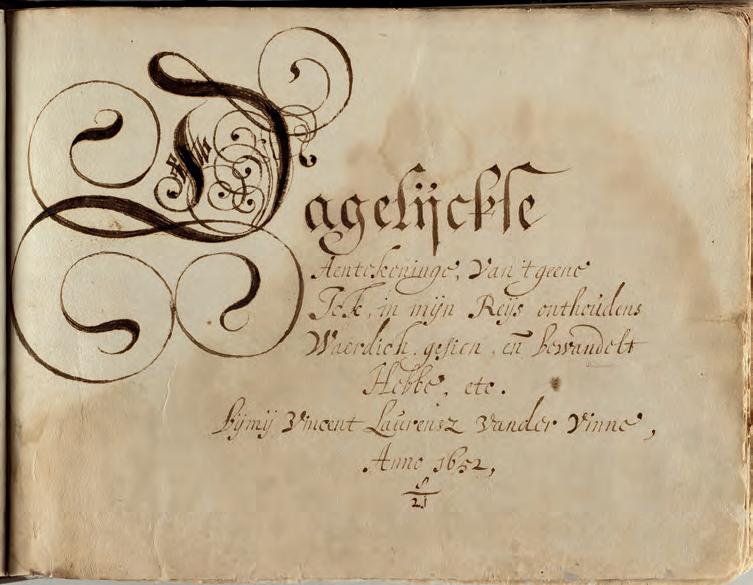 Dagelijckse
Aentekeninge, Van 't geene
Ick, in mijn Reijs onthoudens
Waerdich gesien, en̄ bewandelt
Hebbe, etc.
bijmij Vincent Laurensz vander Vinne,
Anno 1652,
21